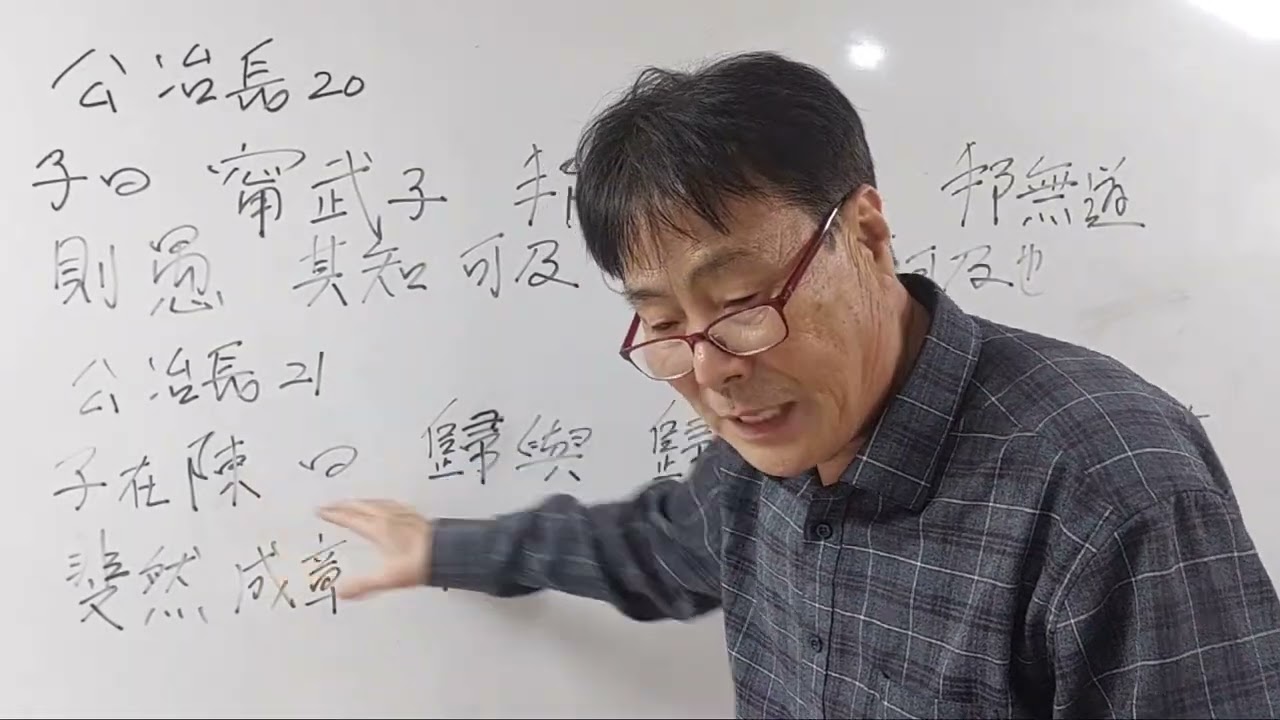 公冶長20
子曰 甯武子 邦無道
則愚 其知可及 可及也
公冶長21
子在陳 曰 歸與
斐然成章